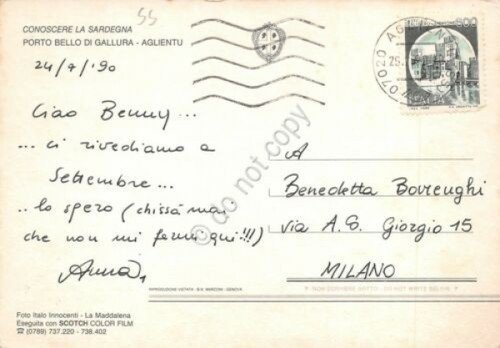 CONOSCERE LA SARDEGNA
PORTO BELLO DI GALLURA - AGLIENTU
55
24/7/'90
Ciao Benny...
... ci rivediamo a
Settembre...
.. lo spero (chissà mai
che non mi fermi qui!!!)
Anna,
500
07020 AGLI
25.
A
Benedetta
via A. G. Giorgio 15
MILANO
RIPRODUZIONE VIETATA - S.V. MARCONI - GENOVA
NON SCRIVERE SOTTO - DO NOT WRITE BELOW
Foto Italo Innocenti - La Maddalena
Eseguita con SCOTCH COLOR FILM
☎ (0789) 737.220 - 738.402
do not copy